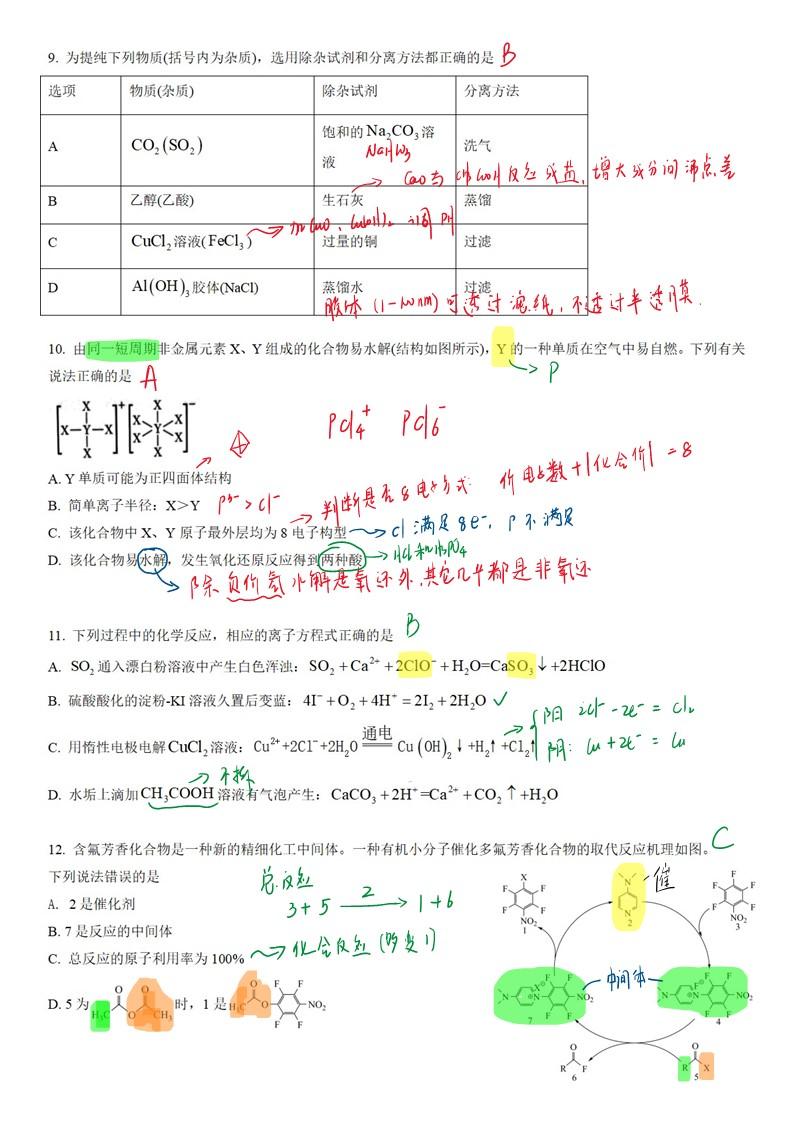 9. 为提纯下列物质(括号内为杂质)，选用除杂试剂和分离方法都正确的是 B
选项 物质(杂质) 除杂试剂 分离方法
A CO₂(SO₂) 饱和的Na₂CO₃溶液 洗气
NaHCO₃
CaO与CH₃COOH反应成盐，增大成分间沸点差
B 乙醇(乙酸) 生石灰 蒸馏
加CuO、Cu(OH)₂ 调pH
C CuCl₂溶液(FeCl₃) 过量的铜 过滤
D Al(OH)₃胶体(NaCl) 蒸馏水 过滤
胶体(1-100nm)可透过滤纸，不透过半透膜.
10. 由同一短周期非金属元素X、Y组成的化合物易水解(结构如图所示)，Y的一种单质在空气中易自燃。下列有关
说法正确的是 A
P
[X—Y—X X X]⁺[X X X Y X X X]⁻
PCl₄⁺ PCl₆⁻
A. Y单质可能为正四面体结构
B. 简单离子半径：X＞Y P³⁻>Cl⁻
判断是否8电子方式: 价电子数+|化合价|=8
C. 该化合物中X、Y原子最外层均为8电子构型
Cl满足8e⁻，P不满足
D. 该化合物易水解，发生氧化还原反应得到两种酸
HCl和H₃PO₄
除负价氢水解是氧还外，其它几乎都是非氧还
11. 下列过程中的化学反应，相应的离子方程式正确的是 B
A. SO₂通入漂白粉溶液中产生白色浑浊：SO₂+Ca²⁺+2ClO⁻+H₂O=CaSO₃↓+2HClO
B. 硫酸酸化的淀粉-KI溶液久置后变蓝：4I⁻+O₂+4H⁺=2I₂+2H₂O ✓
C. 用惰性电极电解CuCl₂溶液：Cu²⁺+2Cl⁻+2H₂O 通电 Cu(OH)₂↓+H₂↑+Cl₂↑
阳: 2Cl⁻-2e⁻=Cl₂
阴: Cu+2e⁻=Cu
不拆
D. 水垢上滴加CH₃COOH溶液有气泡产生：CaCO₃+2H⁺=Ca²⁺+CO₂↑+H₂O
12. 含氟芳香化合物是一种新的精细化工中间体。一种有机小分子催化多氟芳香化合物的取代反应机理如图。 C
下列说法错误的是
总反应
3+5 2 → 1+6
A. 2是催化剂
B. 7是反应的中间体
C. 总反应的原子利用率为100%
化合反应(多变1)
D. 5为 H₃C O O O CH₃ 时，1是 H₃C O O F F F F NO₂
X F F F F NO₂ 1
N N 2
催
F F F F F NO₂ 3
中间体
N N X F F F F NO₂ 7
N N F F F F F NO₂ 4
O R F 6
O R X 5